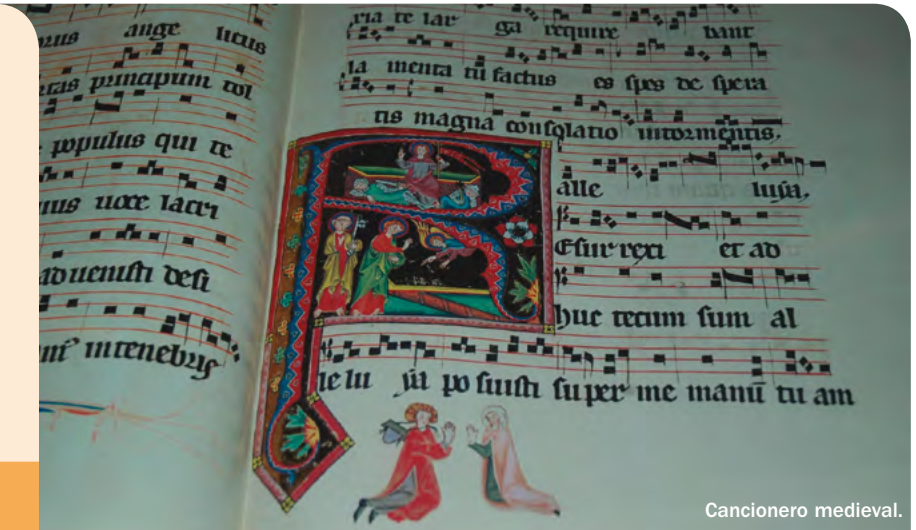 ange licus
principum tol
populus qui te
uoce lacri
aduenisti desi
intenebris
ria te lar ga require bant
la menta tu factus es spes de spera
tis magna consolatio intormentis.
alle luia.
Esur rexi et ad
huc tecum sum al
le lu ya po suisti super me manū tu am
Cancionero medieval.